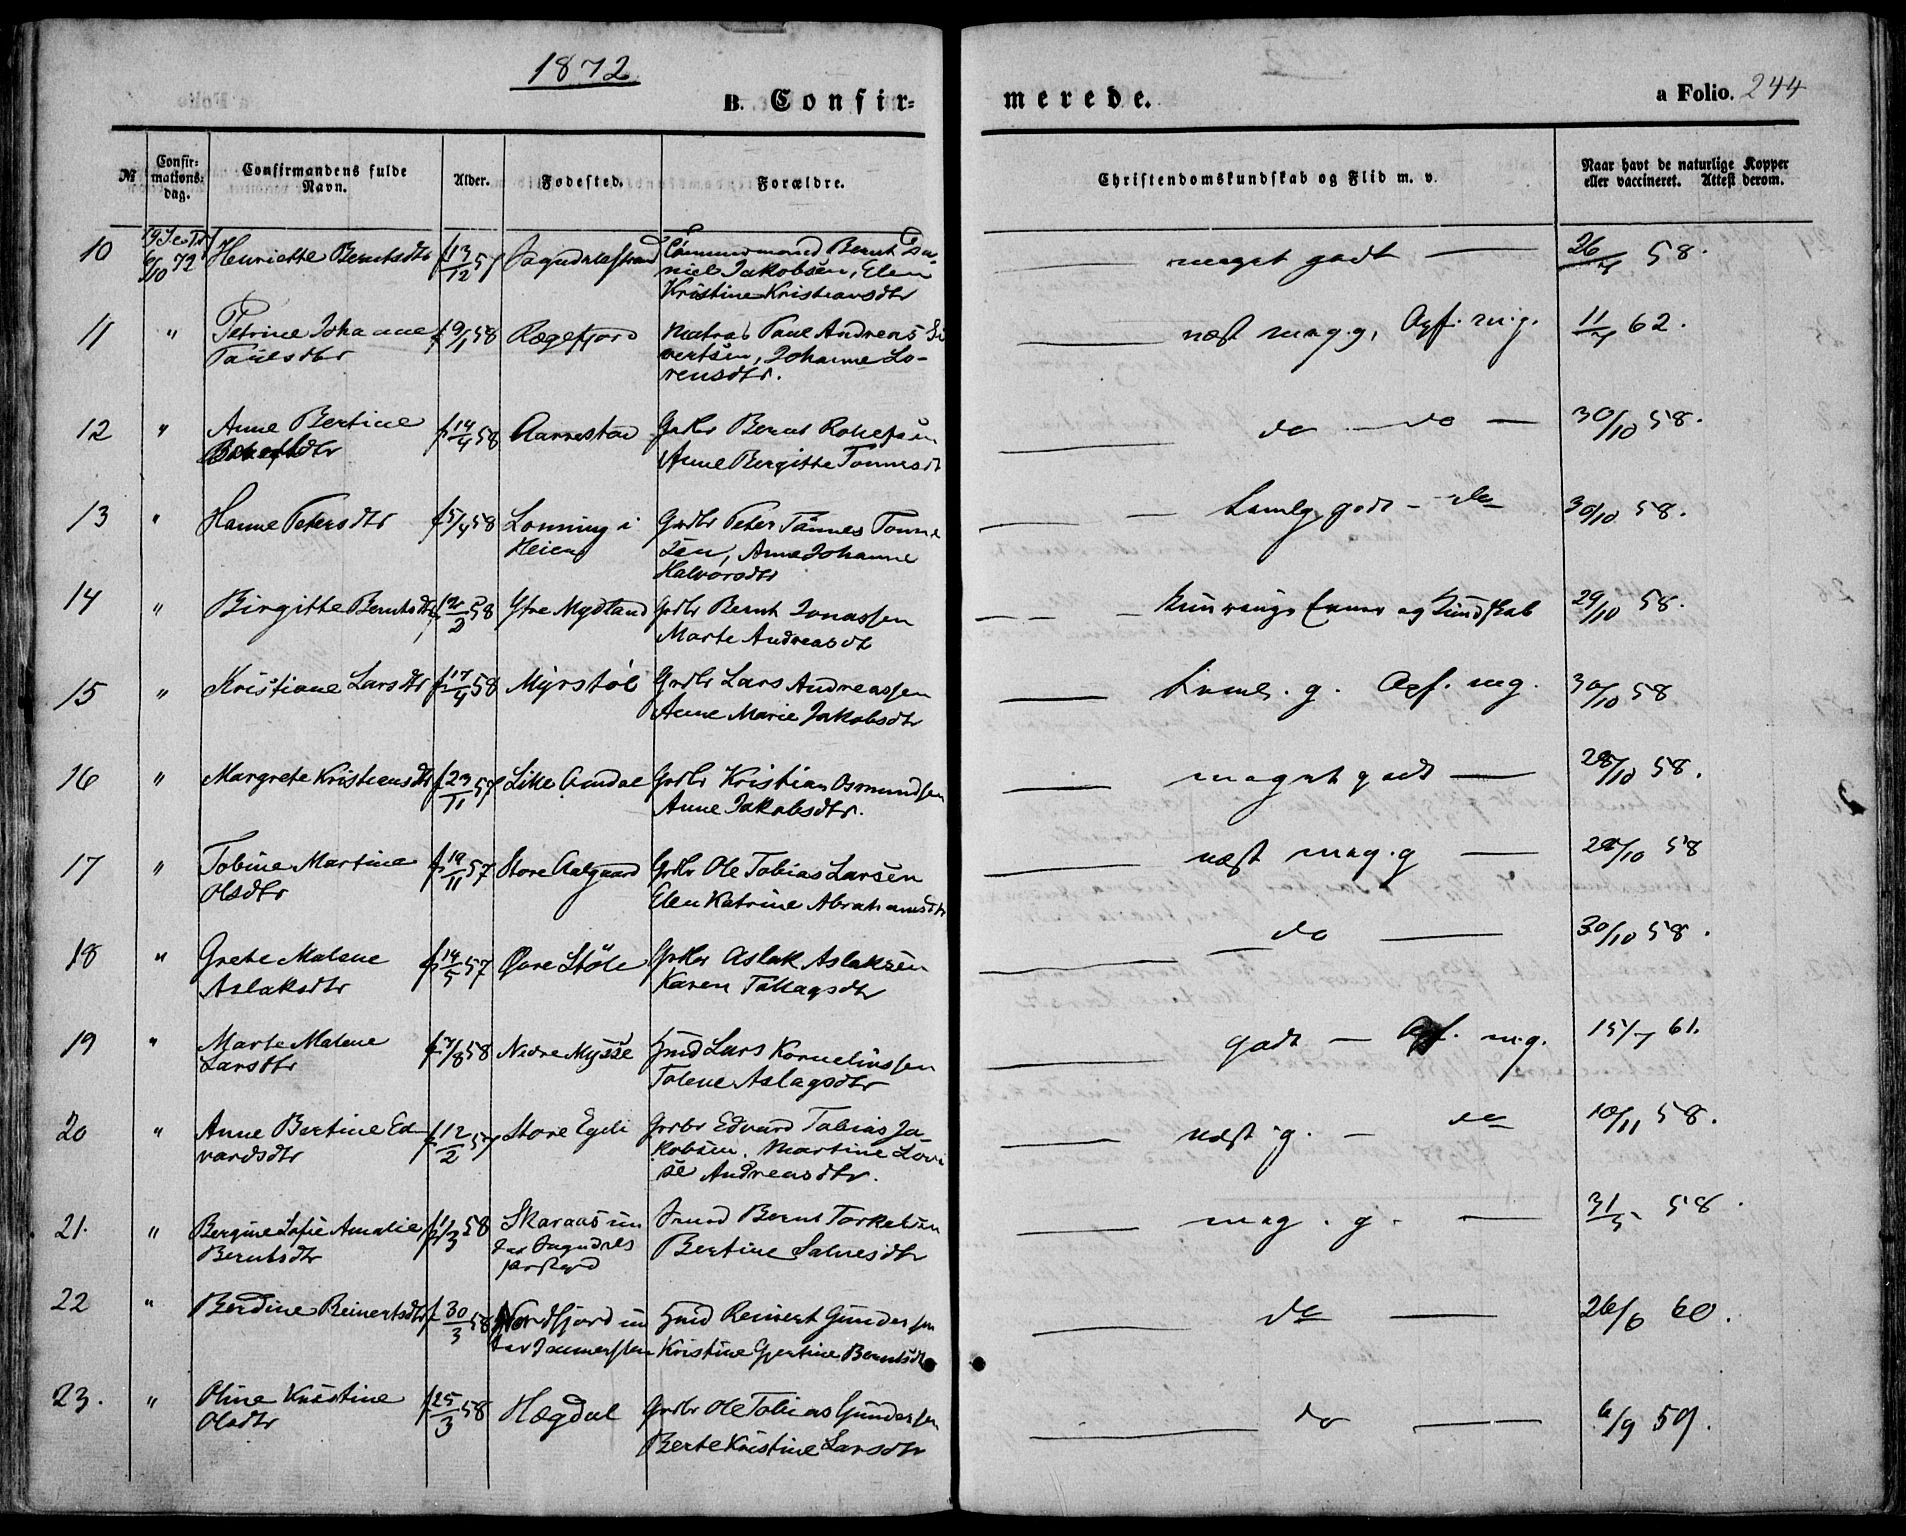 1872
B. Confir=
merede.
a Folio. 244
№
Confir=
mations=
dag.
Confirmandens fulde
Navn.
Alder.
Fødested.
Forældre.
Christendomskundskab og Flid m. v.
Naar havt de naturlige Kopper
eller vaccineret. Attest derom.
10
6/10 72
Henriette Berntsdtr
f 13/12 57
Sogndalsstrand
Bernt Da-
niel Jakobsen, Elen
Kristine Kristiansdtr
meget godt
26/ 58.
11
"
Petrine Johanne
Paulsdtr
f 9/1 58
Rægefjord
Matros Paul Andreas Si
vertsen, Johanne Lo-
rensdtr.
næst meg. g, Opf. m. g.
11/ 62.
12
"
Anne Bertine
f 14/4 58
Aarrestad
Grdbr Bernt
Anne Bergitte Tønnesdt
do - do
30/10 58.
13
"
Hanne Petersdtr
f 5/4 58
Lonning i
Heien
Grdbr Peter Tønnes Tønne
sen, Anne Johanne
Halvorsdtr
temlg. godt - do
30/10 58.
14
"
Birgitte Berntsdtr
f 12/2 58
Yfre Mydland
Grdbr Bernt Jonassen
Marte Andreasdt
kun ringe Evner og Kundskab
29/10 58.
15
"
Kristiane Larsdtr
f 17/4 58
Myrstøl
Grdbr Lars Andreassen
Anne Marie Jakobsdtr
teml. g. Opf. mg.
30/10 58
16
"
Margrete Kristiansdtr
f 23/11 57
Litle Amdal
Grdbr Kristian Osmundsen
Anne Jakobsdtr.
meget godt
28/10 58.
17
"
Tobine Martine
Olsdtr
f 19/11 57
Store Aalgaard
Grdbr Ole Tobias Larsen
Elen Katrine Abrahamsdtr
næst meg. g
29/10 58
18
"
Grete Malene
Aslaksdtr
f 14/5 57
Øvre Støle
Grdbr Aslak Aslaksen
Karen Tollagsdtr
do
30/10 58.
19
"
Marte Malene
Larsdtr
58
Nedre Mysse
Hmd Lars Korneliussen
Tolene Aslagsdtr
godt - Opf. m.g.
15/7 61.
20
"
Anne Bertine Ed-
vardsdtr
f 12/2 57
Store Egeli
Grdbr Edvard Tobias Ja
kobsen. Martine Lovi
se Andreasdtr.
næst g. - do
10/11 58.
21.
"
Bergine Sofie Amalie
Berntsdtr
f 1/3 58
Skaraas un
der Sogndals
Bernt Torkelsen
Bertine Salvesdtr
meg. g.
31/5 58.
22
"
Berdine Reinertsdtr
f 30/3 58
Nordfjord un
Hmd Reinert Gundersen
Kristine Gjertine Berntsdtr
do
26/6 60.
23.
"
Oline Kristine
Olsdtr
f 25/3 58
Hægdal
Grdbr Ole Tobias Gundersen
Berte Kristine Larsdtr
do
6/9 59.